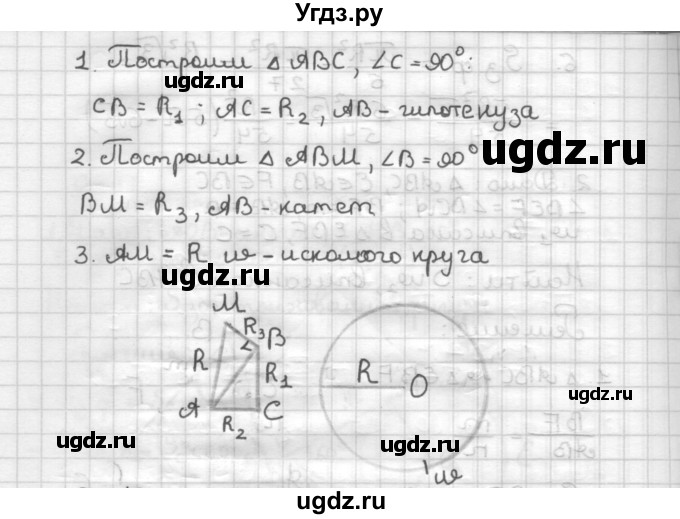 Угдз.ру
1. Построим △ ABC, ∠C = 90°:
CB = R₁ ; AC = R₂, AB - гипотенуза
ugdz.ru
ugdz.ru
2. Построим △ ABM, ∠B = 90°
BM = R₃, AB - катет
3. AM = R ω - искомого круга
ugdz.ru
ugdz.ru
M
R₃ B
R R₁ R O
A C
R₂
ugdz.ru
ugdz.ru
ω
ugdz.ru